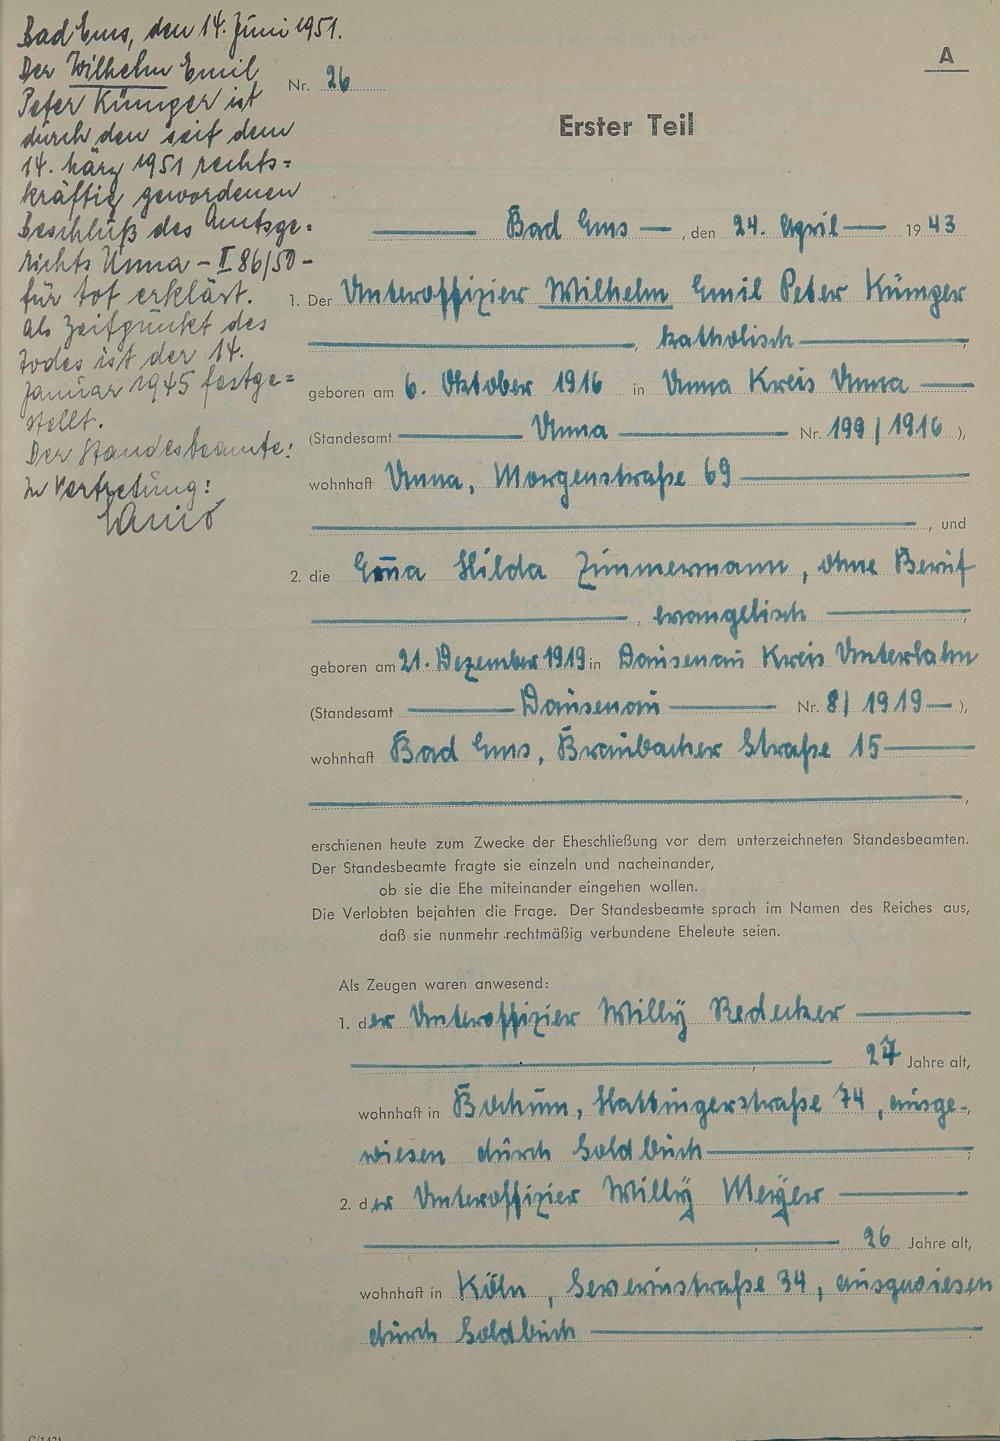 Bad Ems, den 14. Juni 1951.
Der Wilhelm Emil
Peter Künger ist
durch den seit dem
14. März 1951 rechts=
kräftig gewordenen
Beschluß des Amtsge=
richts Unna - II 86/50 -
für tot erklärt.
Als Zeitpunkt des
Todes ist der 14.
Januar 1945 festge=
stellt.
Der Standesbeamte:
In Vertretung:
A
Nr. 26
Erster Teil
Bad Ems, den 24. April 1943
1. Der Unteroffizier Wilhelm Emil Peter Künger
, katholisch,
geboren am 6. Oktober 1916 in Unna Kreis Unna
(Standesamt Unna Nr. 199/1916),
wohnhaft Unna, Morgenstraße 69
, und
2. die Em̅a Hilda Zimmermann, ohne Beruf
, evangelisch,
geboren am 21. Dezember 1919 in Dausenau Kreis Unterlahn
(Standesamt Dausenau Nr. 8/1919),
wohnhaft Bad Ems, Braubacher Straße 15
,
erschienen heute zum Zwecke der Eheschließung vor dem unterzeichneten Standesbeamten.
Der Standesbeamte fragte sie einzeln und nacheinander,
ob sie die Ehe miteinander eingehen wollen.
Die Verlobten bejahten die Frage. Der Standesbeamte sprach im Namen des Reiches aus,
daß sie nunmehr rechtmäßig verbundene Eheleute seien.
Als Zeugen waren anwesend:
1. der Unteroffizier Willy Redecker
, 27 Jahre alt,
wohnhaft in Bochum, Hattingerstraße 74, ausge-
wiesen durch Soldbuch;
2. der Unteroffizier Willy Meyer
, 26 Jahre alt,
wohnhaft in Köln, Severinstraße 34, ausgewiesen
durch Soldbuch